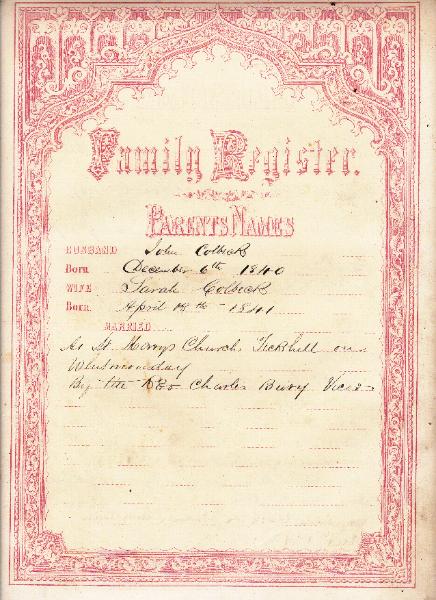 Family Register.
PARENTS NAMES
HUSBAND John Colbeck
Born December 6th 1840
WIFE Sarah Colbeck
Born April 18th - 1841
MARRIED
At St. Marys Church Tickhill on
Whitmonday
By the Rev Charles Bury Vicar